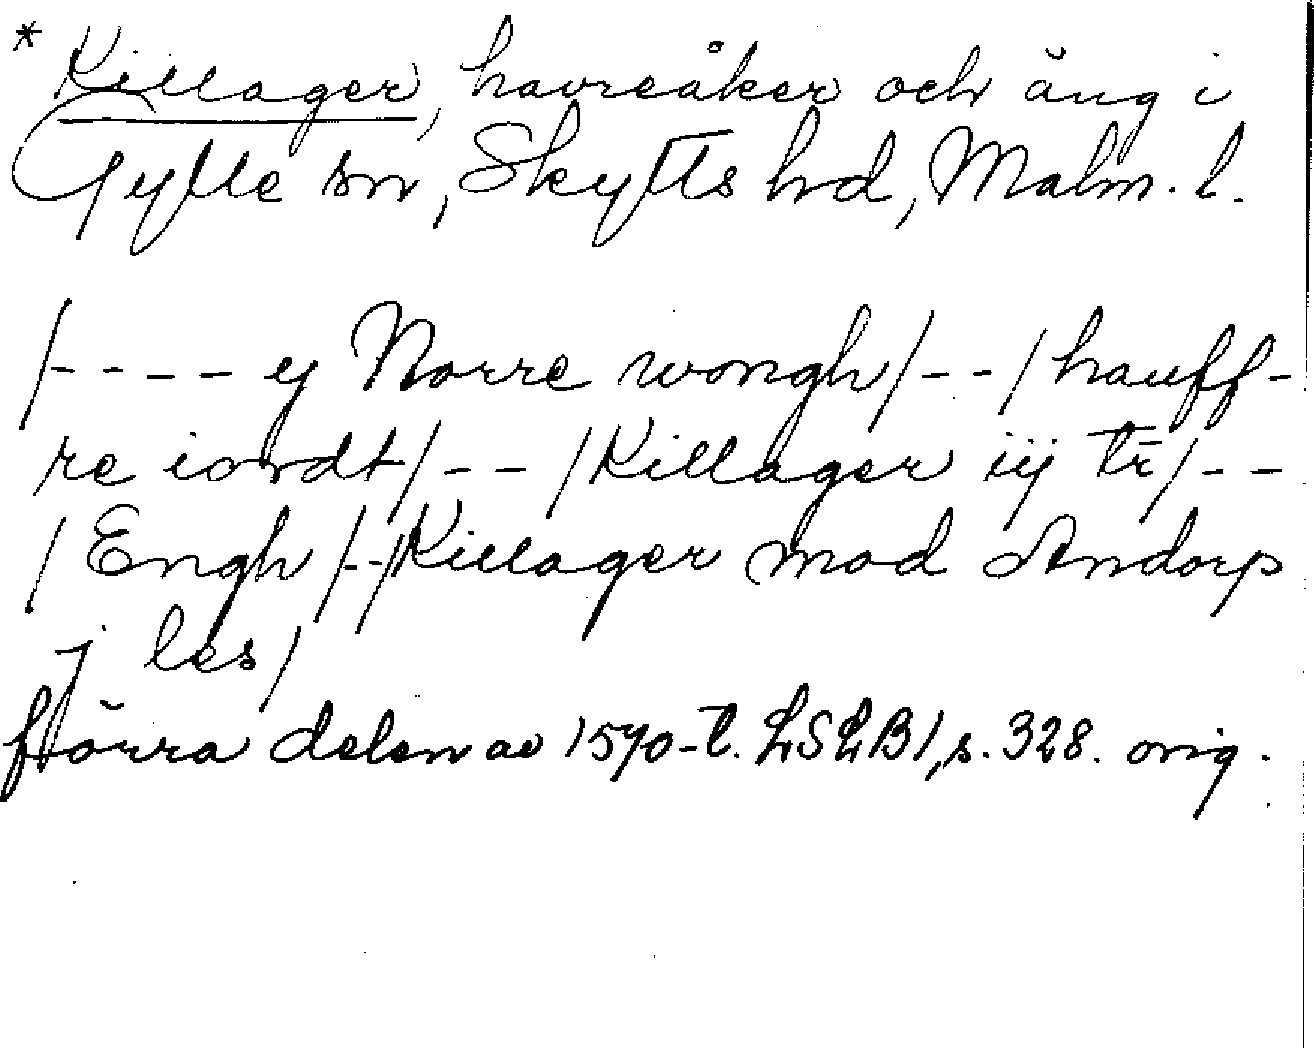 * Killager, havreåker och äng i
Gylle sn, Skytts hd, Malm. l.
/---- y Norre wongh/--/hauff-
re iordt/--/Killager iij tr̄/--
/Engh/--/Killager mod Andorp
j les/
förra delen av 1570-t. LSLB1, s. 328. orig.